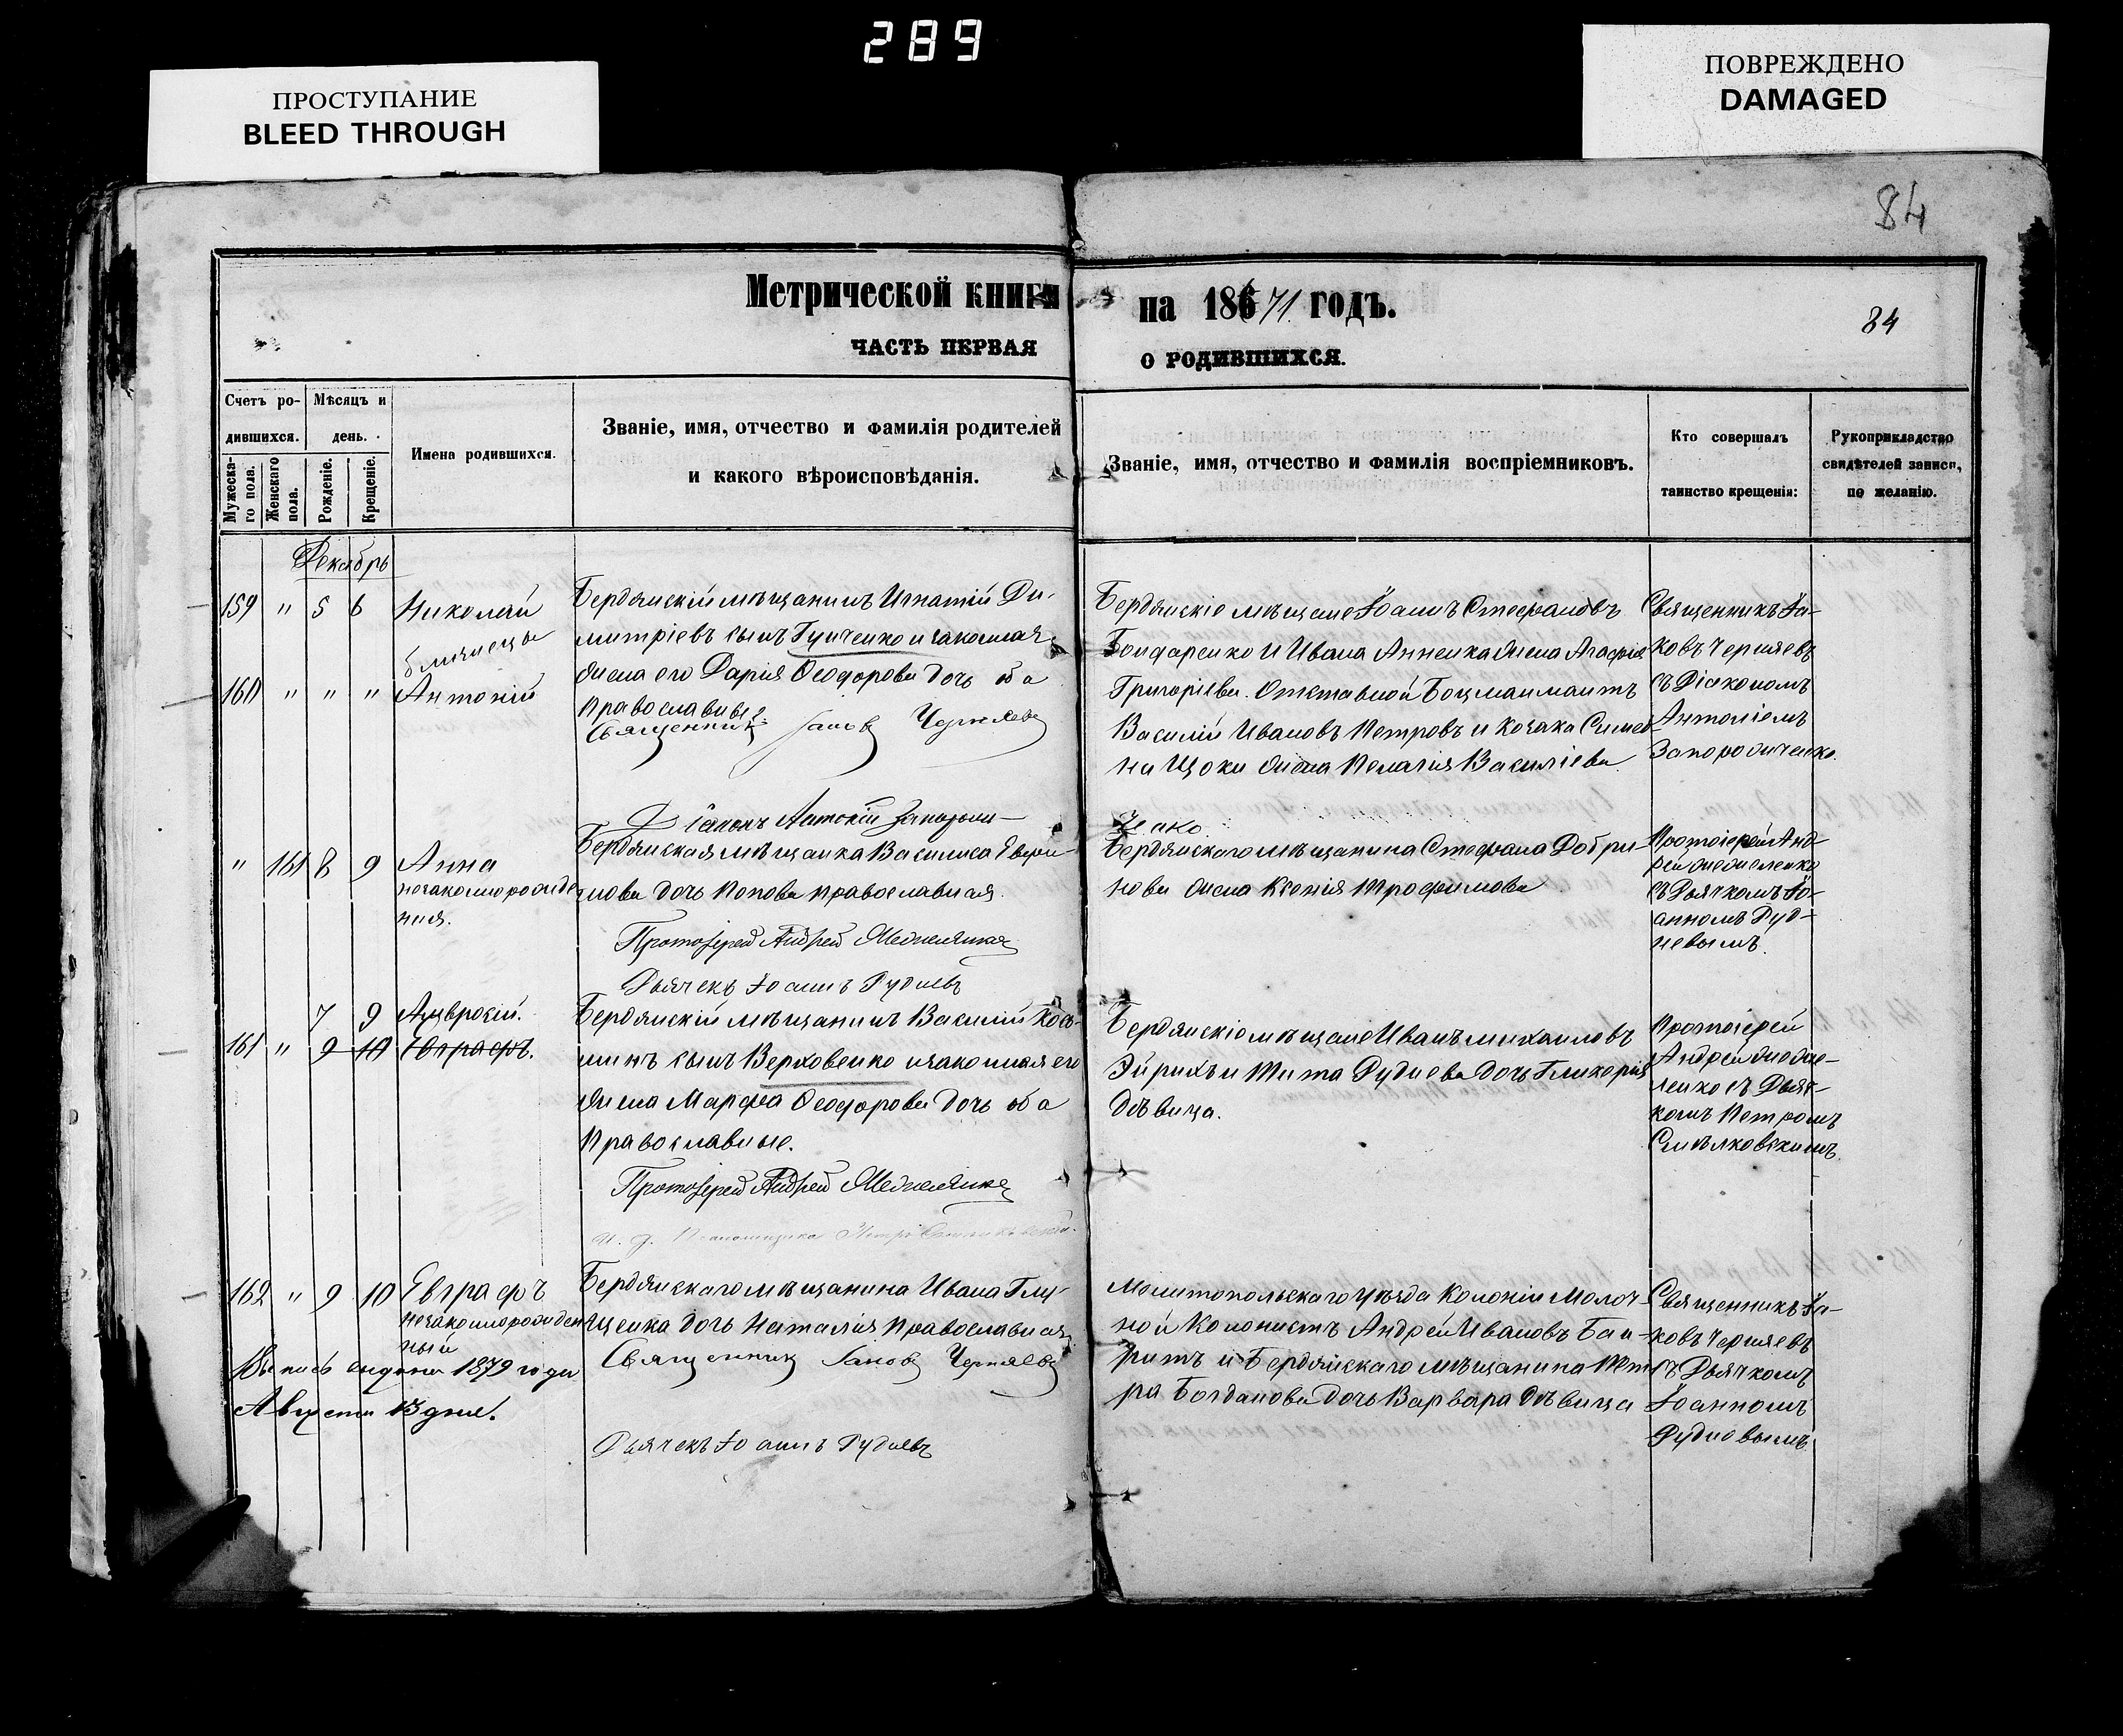 289
ПРОСТУПАНИЕ
BLEED THROUGH
ПОВРЕЖДЕНО
DAMAGED
84
Метрической книги на 1871 годъ.
84
ЧАСТЬ ПЕРВАЯ о РОДИВШИХСЯ.
Счетъ ро-
дившихся.
Мужеска-
го пола.
Женскаго
пола.
Мѣсяцъ и
день.
Рожденіе.
Крещеніе.
Имена родившихся.
Званіе, имя, отчество и фамилія родителей
и какого вѣроисповѣданія.
Званіе, имя, отчество и фамилія воспріемниковъ.
Кто совершалъ
таинство крещенія:
Рукоприкладство
свидѣтелей записи,
по желанію.
Декабрь
159 " 5 6 Николай
близнецы
160 " " " Антоній
Бердянскій мѣщанинъ Игнатій Ди-
митріевъ сынъ Гупченко и законная
жена его Дарія Ѳеодорова дочь оба
Православные.
Священникъ Іаковъ Черняевъ
Діаконъ Антоній Запорож-
Бердянскіе мѣщане Іоаннъ Стефановъ
Бондаренко и Ивана Анненка жена Агафія
Григоріева. Отставной Боцманматъ
Василій Ивановъ Петровъ и козака Симео
на Щоки жена Пелагія Василіева.
ченко.
Священникъ Іа-
ковъ Черняевъ
съ Діакономъ
Антоніемъ
Запорожченко.
" 161 8 9 Анна
незаконнорожде
ная.
Бердянская мѣщанка Василиса
дочь Попова православная.
Протоіерей Андрей
Дьячекъ Іоаннъ Рудневъ
Бердянскаго мѣщанина Стефана Добри-
нова жена Ксенія Трофимова
Протоіерей Анд-
рей
съ Дьячкомъ Іо-
анномъ Руд-
невымъ.
7 9 Амвросій.
161 " 9 10 Евграфъ.
Бердянскій мѣщанинъ Василій Кось-
минъ сынъ Верховенко и законная его
жена Марфа Ѳеодорова дочь оба
Православные.
Протоіерей Андрей
и. д. Псаломщика Петръ
Бердянскіе мѣщане Иванъ Михаиловъ
Эйрихъ и Тита Руднева дочь Гликерія
Дѣвица.
Протоіерей
Андрей
съ Дьяч-
комъ Петромъ
162 " 9 10 Евграфъ
незаконнорожден
ный
Выпись выдана 1879 года
Августа 13 дня.
Бердянскаго мѣщанина Ивана Глу-
щенка дочь Наталія Православная
Священникъ Іаковъ Черняевъ
Дьячекъ Іоаннъ Рудневъ
Мелитопольскаго уѣзда Колоніи Молоч-
ной Колонистъ Андрей Ивановъ
и Бердянскаго мѣщанина Пет
ра Богданова дочь Варвара Дѣвица
Священникъ Іа-
ковъ Черняевъ
съ Дьячкомъ
Іоанномъ
Рудневымъ.